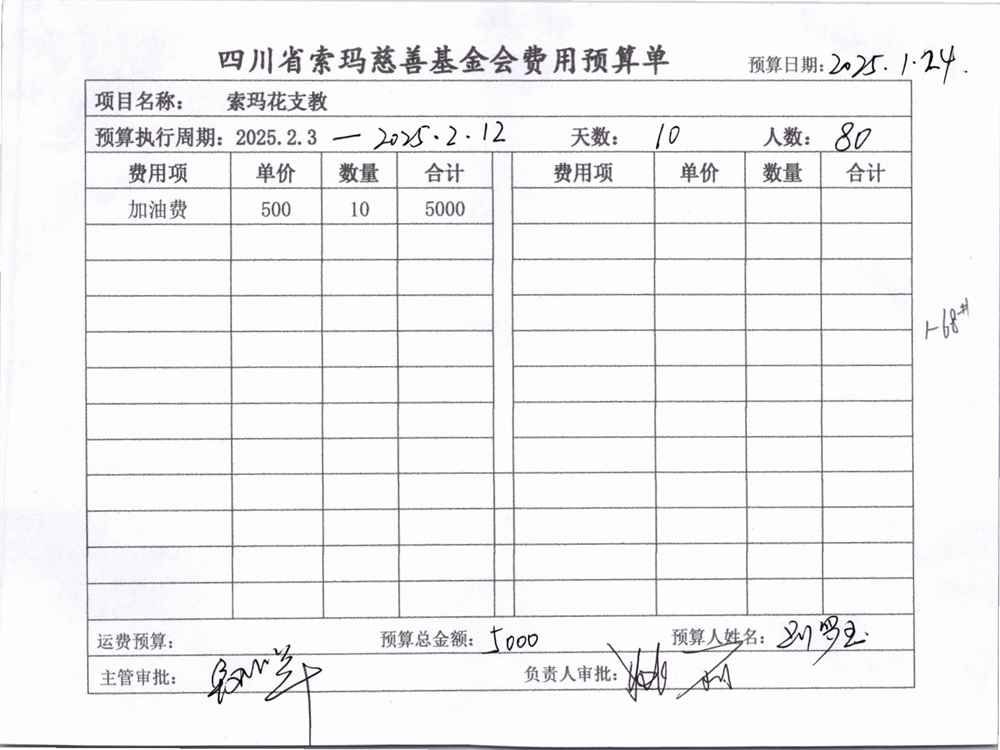 四川省索玛慈善基金会费用预算单
预算日期:2025.1.24.
项目名称: 索玛花支教
预算执行周期: 2025.2.3 — 2025.2.12 天数: 10 人数: 80
费用项 单价 数量 合计 费用项 单价 数量 合计
加油费 500 10 5000
1-68#
运费预算: 预算总金额: 5000 预算人姓名:
主管审批: 负责人审批: